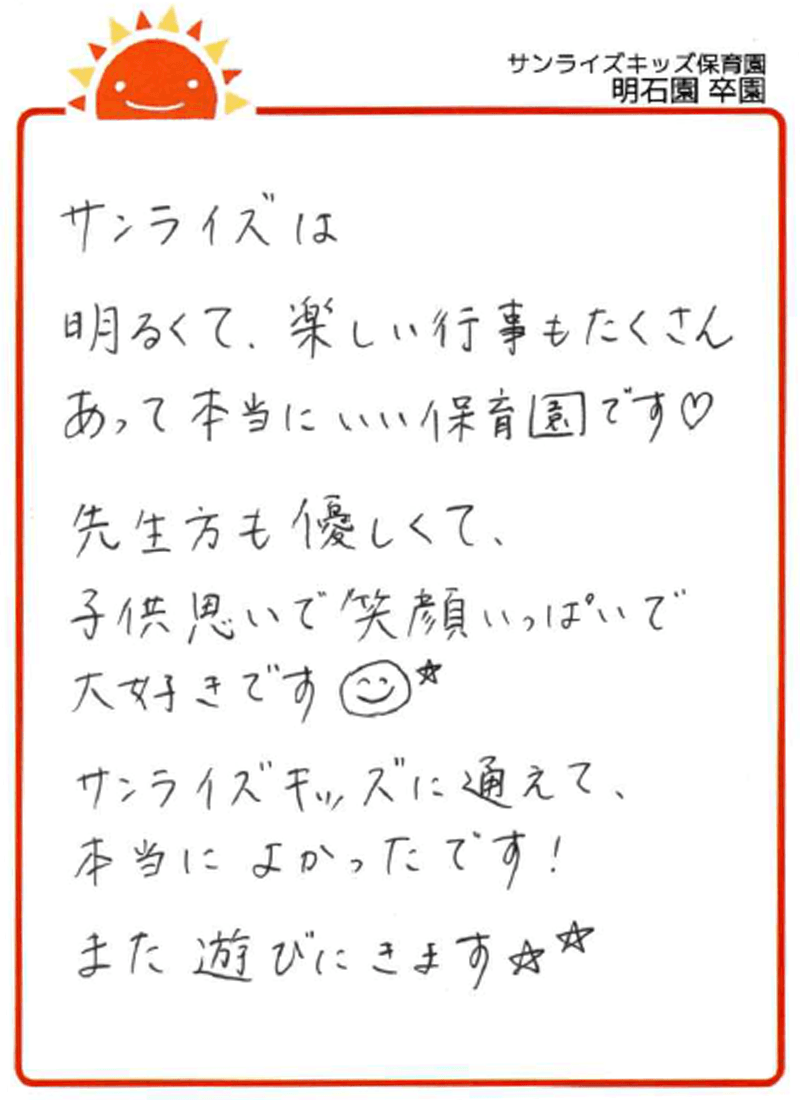 サンライズキッズ保育園
明石園 卒園
サンライズは
明るくて、楽しい行事もたくさん
あって本当にいい保育園です♡
先生方も優しくて、
子供思いで笑顔いっぱいで
大好きです☺☆
サンライズキッズに通えて、
本当によかったです！
また遊びにきます☆☆